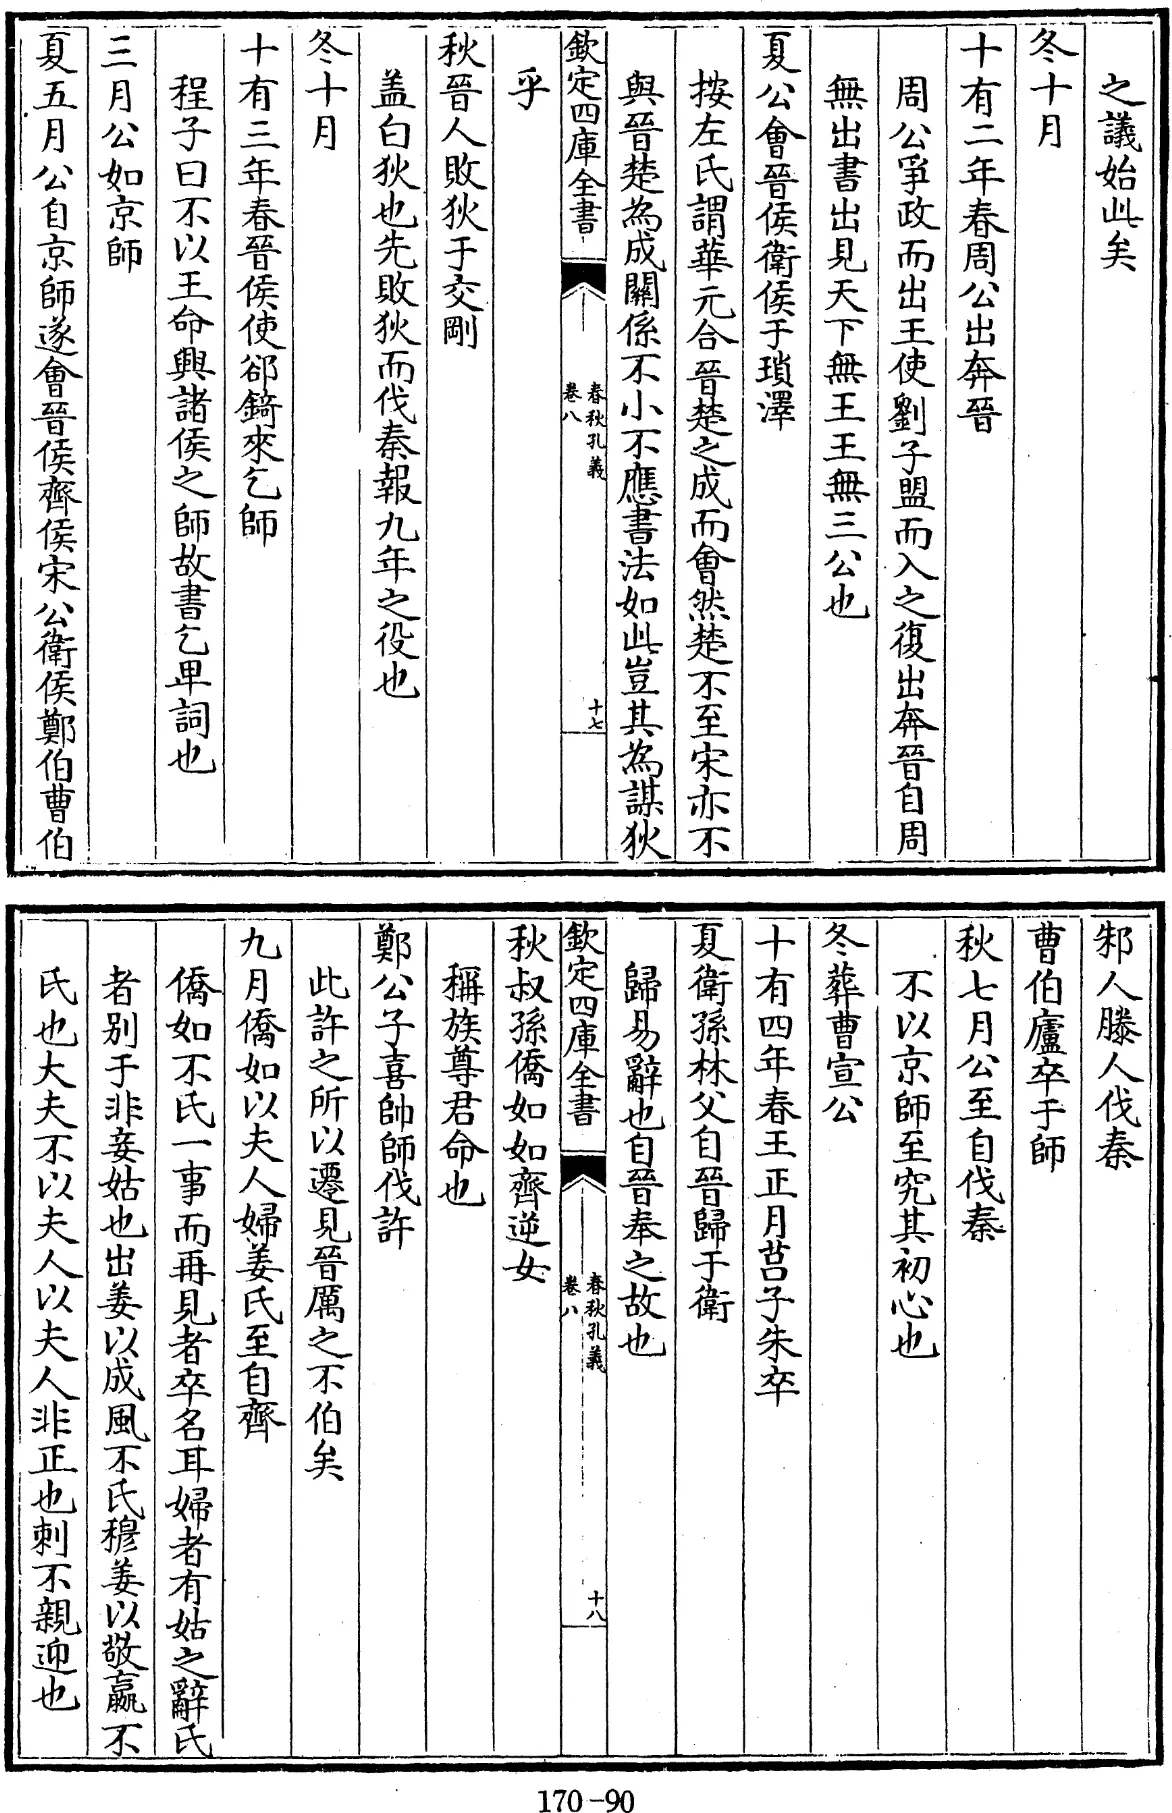 之議始此矣
冬十月
十有二年春周公出奔晉
周公爭政而出王使劉子盟而入之復出奔晉自周
無出書出見天下無王王無三公也
夏公會晉侯衛侯于瑣澤
按左氏謂華元合晉楚之成而會然楚不至宋亦不
與晉楚為成關係不小不應書法如此豈其為謀狄
欽定四庫全書
春秋孔義
卷八
十七
乎
秋晉人敗狄于交剛
盖白狄也先敗狄而伐秦報九年之役也
冬十月
十有三年春晉侯使郤錡來乞師
程子曰不以王命興諸侯之師故書乞卑詞也
三月公如京師
夏五月公自京師遂會晉侯齊侯宋公衛侯鄭伯曹伯
邾人滕人伐秦
曹伯廬卒于師
秋七月公至自伐秦
不以京師至究其初心也
冬葬曹宣公
十有四年春王正月莒子朱卒
夏衛孫林父自晉歸于衛
歸易辭也自晉奉之故也
欽定四庫全書
春秋孔義
卷八
十八
秋叔孫僑如如齊逆女
稱族尊君命也
鄭公子喜帥師伐許
此許之所以遷見晉厲之不伯矣
九月僑如以夫人婦姜氏至自齊
僑如不氏一事而再見者卒名耳婦者有姑之辭氏
者别于非妾姑也出姜以成風不氏穆姜以敬嬴不
氏也大夫不以夫人以夫人非正也刺不親迎也
170-90